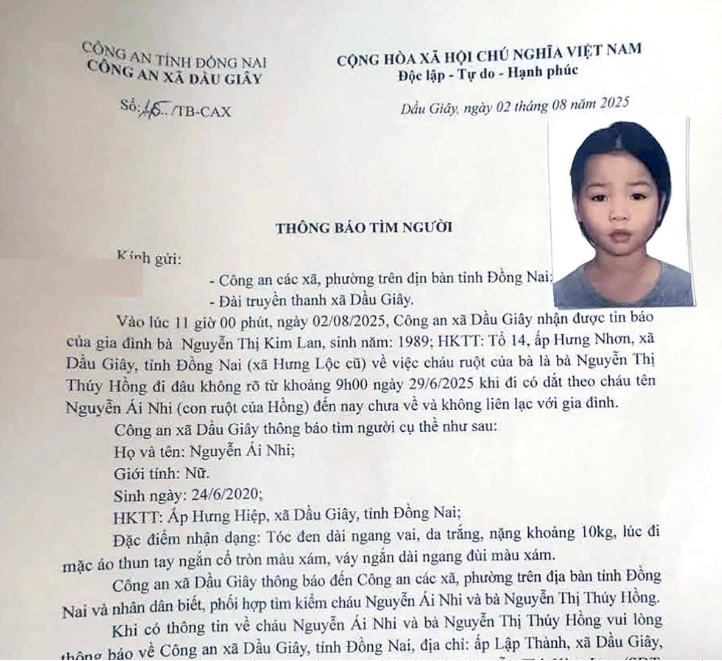 CÔNG AN TỈNH ĐỒNG NAI
CÔNG AN XÃ DẦU GIÂY
Số: 45../TB-CAX
CỘNG HÒA XÃ HỘI CHỦ NGHĨA VIỆT NAM
Độc lập - Tự do - Hạnh phúc
Dầu Giây, ngày 02 tháng 08 năm 2025
THÔNG BÁO TÌM NGƯỜI
Kính gửi:
- Công an các xã, phường trên địn bàn tỉnh Đồng Nai;
- Đài truyền thanh xã Dầu Giây.
Vào lúc 11 giờ 00 phút, ngày 02/08/2025, Công an xã Dầu Giây nhận được tin báo
của gia đình bà Nguyễn Thị Kim Lan, sinh năm: 1989; HKTT: Tổ 14, ấp Hưng Nhơn, xã
Dầu Giây, tỉnh Đồng Nai (xã Hưng Lộc cũ) về việc cháu ruột của bà là bà Nguyễn Thị
Thúy Hồng đi đâu không rõ từ khoảng 9h00 ngày 29/6/2025 khi đi có dắt theo cháu tên
Nguyễn Ái Nhi (con ruột của Hồng) đến nay chưa về và không liên lạc với gia đình.
Công an xã Dầu Giây thông báo tìm người cụ thể như sau:
Họ và tên: Nguyễn Ái Nhi;
Giới tính: Nữ.
Sinh ngày: 24/6/2020;
HKTT: Ấp Hưng Hiệp, xã Dầu Giây, tỉnh Đồng Nai;
Đặc điểm nhận dạng: Tóc đen dài ngang vai, da trắng, nặng khoảng 10kg, lúc đi
mặc áo thun tay ngắn cổ tròn màu xám, váy ngắn dài ngang đùi màu xám.
Công an xã Dầu Giây thông báo đến Công an các xã, phường trên địa bàn tỉnh Đồng
Nai và nhân dân biết, phối hợp tìm kiếm cháu Nguyễn Ái Nhi và bà Nguyễn Thị Thúy Hồng.
Khi có thông tin về cháu Nguyễn Ái Nhi và bà Nguyễn Thị Thúy Hồng vui lòng
thông báo về Công an xã Dầu Giây, tỉnh Đồng Nai, địa chỉ: ấp Lập Thành, xã Dầu Giây,